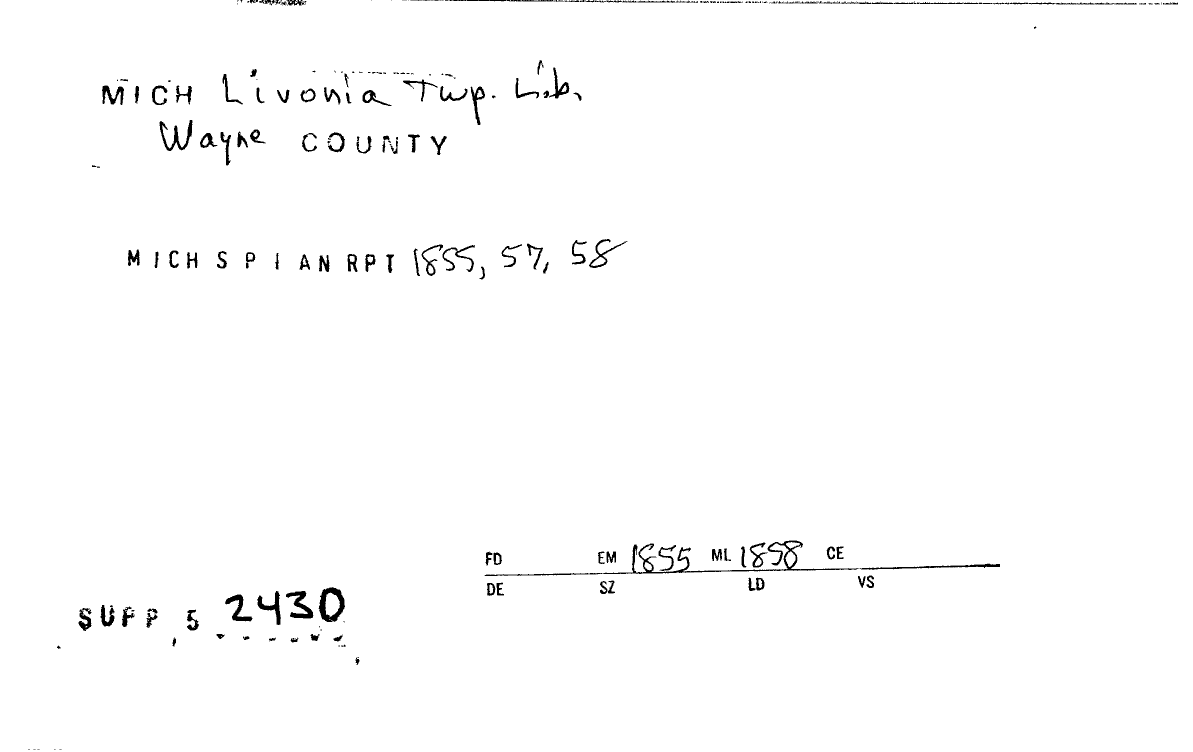 MICH Livonia Twp. Lib.
Wayne COUNTY
MICH S P I AN RPT 1855, 57, 58
FD EM 1855 ML 1858 CE
DE SZ LD VS
SUPP 5 2430